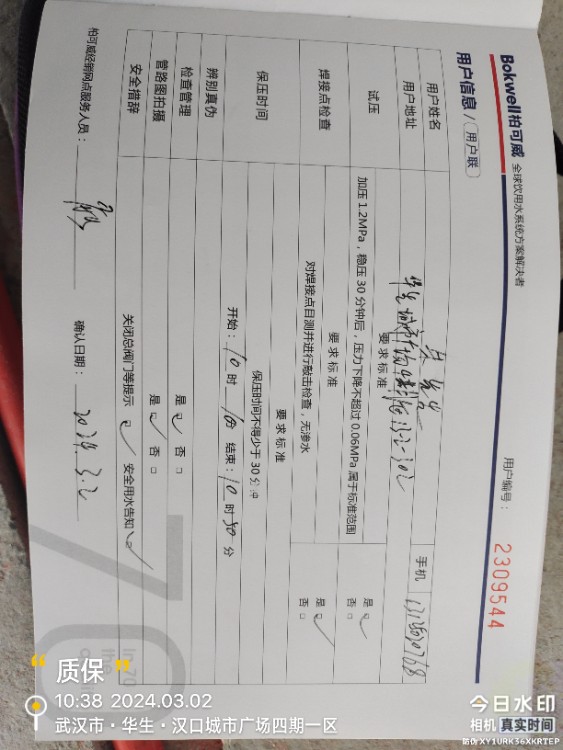 Bokwell柏可威 全球饮用水系统方案解决者
用户编号： 2309544
用户信息 / 用户联
用户姓名
先生
手机
用户地址
华生城市广场
试压
要求标准
加压 1.2MPa，稳压 30 分钟后，压力下降不超过 0.06MPa 属于标准范围
是 ✓
否 □
焊接点检查
要求标准
对焊接点目测并进行敲击检查，无渗水
是 □ ✓
否 □
保压时间
要求标准
保压时间不得少于 30 分钟
开始： 10 时 10 分 结束： 10 时 50 分
辨别真伪
检查管理
是 ✓ 否 □
管路图拍摄
是 ✓ 否 □
安全措辞
关闭总阀门等提示 ✓ 安全用水告知 ✓
柏可威经销网点服务人员：
确认日期： 2024.3.2
“质保”
10:38 2024.03.02
武汉市·华生·汉口城市广场四期一区
今日水印
相机 真实时间
防伪 XY1URK36XKRTEP